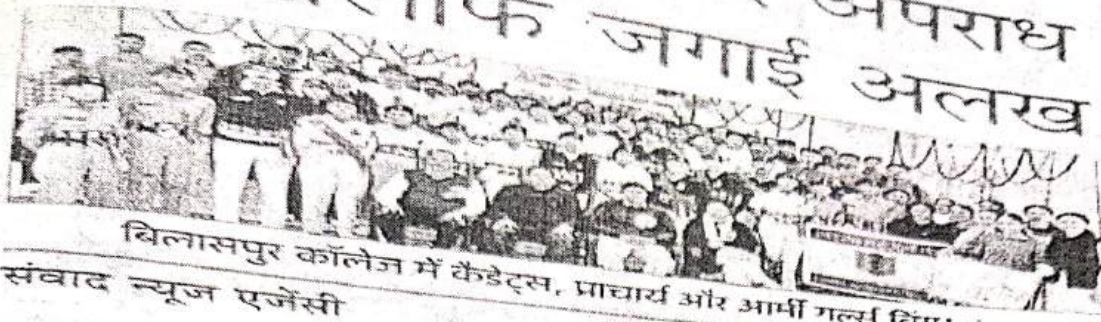 अपराध
जगाई अलख
बिलासपुर कॉलेज में कैडेट्स, प्राचार्य और आर्मी गर्ल्स विंग
संवाद न्यूज एजेंसी